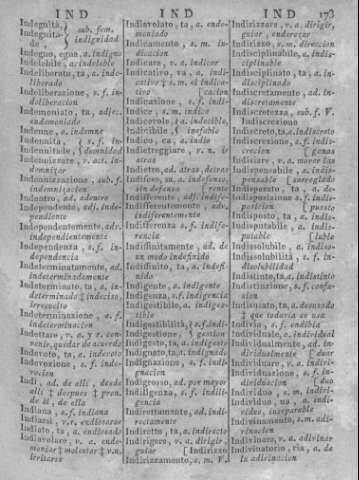 IND
IND
IND
173
Indegnità,
Indegnitade
sub. fem.
indignidad
Indegno, egna, a. indigno
Indelebile, a. indeleble
Indeliberato, ta, a. indeliberado
Indeliberazione, s. f. indeliberacion
Indemoniato, ta, adjec. endemoniado
Indenne, a. indemne
Indennità,
Indennitade,
s. f. indemnidad
Indennizzare, v. act. indemnizar
Indennizzazione, sub. f. indemnizacion
Indentro, ad. adentro
Independente, adj. independiente
Independentemente, adv. independientemente
Independenza, s. f. independencia
Indeterminatamente, ad. indeterminadamente
Indeterminato, ta, a. indeterminado ‡ indeciso, irresoluto
Indeterminazione, s. f. indeterminacion
Indettare, v. a. y r. convenir, quedar de acuerdo
Indevoto, ta, a. indevoto
Indevozione, s. f. indevocion
Indi, ad. de alli, desde alli ‡ despues ‡ pron. de él, de ella
Indiana, s. f. indiana
Indiarsi, v. r. endiosarse
Indiato, ta, a. endiosado
Indiavolare, v. a. endemoniar ‡ molestar ‡ v. n.
Indiavolato, ta, a. endemoniado
Indicamento, s. m. indicacion
Indicare, v. a. indicar
Indicativo, va, a. indicativo ‡ s. m. el indicativo
Indicazione, s. f. indicacion
Indice, s. m. indice
Indicevole, a. indecible,
Indicibile, inefable
Indico, ca, a. indio
Indietreggiare, v. n. ir atras
Indietro, ad. atras, detras
Indifeso, sa, a. indefenso, sin defensa
Indifferente, a. indiferente
Indifferentemente, adv. indiferentemente
Indifferenza, s. f. indiferencia
Indifinitamente, ad. de un modo indefinido
Indifinito, ta, a. indefinido
Indigente, a. indigente
Indigenza, s. f. indigencia
Indigestibile, a. indigestible
Indigestibilità,
Indigestione,
s. f. indigestion
Indigesto, ta, a. indigesto
Indignato, ta, a. indignado
Indignazione, s. f. indignacion
Indigrosso, ad. por mayor
Indiligenza, s. f. indiligencia
Indirettamente, ad. indirectamente
Indiretto, ta, a. indirecto
Indirigere, v. a. dirigir, guiar
Indirizzamento, s. m. V. Indirizzo
Indirizzare, v. a. dirigir, guiar, enderezar
Indirizzo, s. m. direccion
Indisciplinabile, a. indisciplinable
Indisciplinato, ta, a. indisciplinado
Indiscretamente, ad. indiscretamente
Indiscretezza, sub. f. V. Indiscrezione
Indiscreto, ta, a. indiscreto
Indiscrezione, s. f. indiscrecion
Indispensabile, a. indispensable
Indisposizione, s. f. indisposicion
Indisposto, ta, a. indispuesto
Indisputabile, a. indisputable
Indissolubile, a. indisoluble
Indissolubilità, s. f. indisolubilidad
Indistinto, ta, a. indistinto
Indistinzione, s. f. confusion
Indivia, s. f. endibia
Individuale, a. individual
Individualmente, ad. individualmente
Individuare, v. a.
Individuazione, s. f. individuacion
Individuo, s. m. individuo
Individuo, ua, a. individuo, inseparable
Indivinamento, s. m. adivinacion
Indivinare, v. a. adivinar
Indivinatorio, ria, a. de la adivinacion